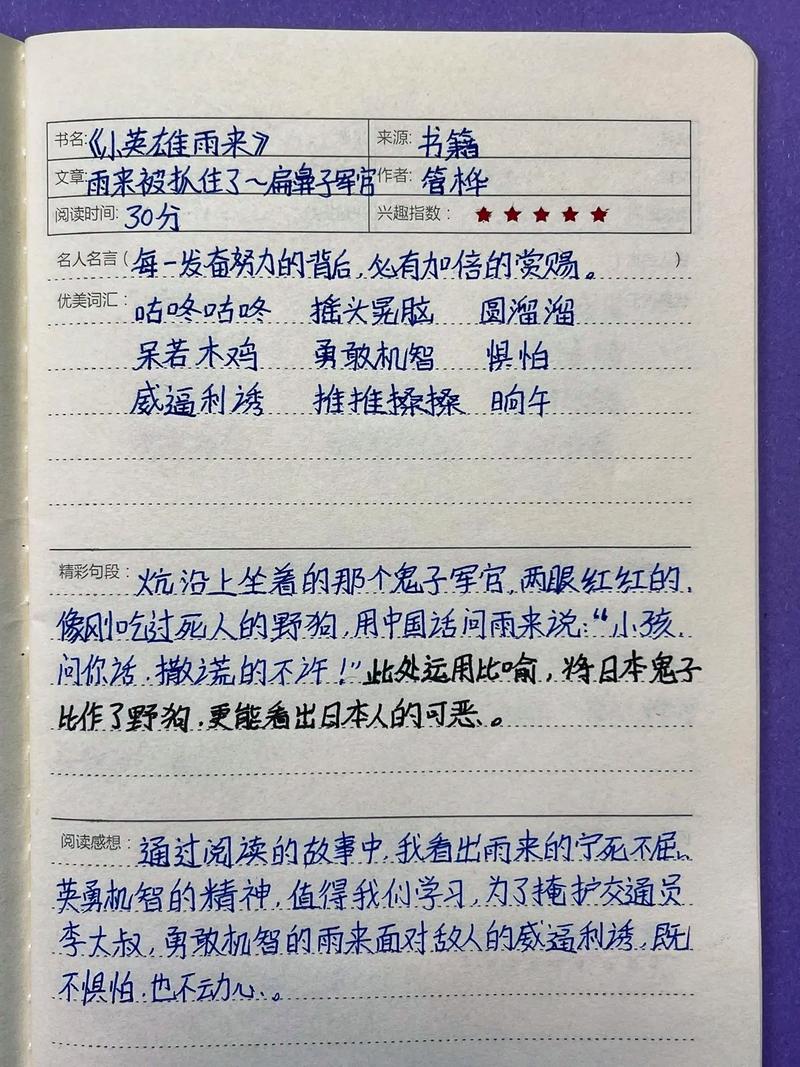 书名:《小英雄雨来》 来源: 书籍
文章: 雨来被抓住了~扁鼻子军官 作者: 管桦
阅读时间: 30分 兴趣指数: ★★★★★
名人名言(每一发奋努力的背后,必有加倍的赏赐。)
优美词汇: 咕咚咕咚 摇头晃脑 圆溜溜
呆若木鸡 勇敢机智 惧怕
威逼利诱 推推搡搡 晌午
精彩句段: 炕沿上坐着的那个鬼子军官,两眼红红的,
像刚吃过死人的野狗,用中国话问雨来说:“小孩,
问你话,撒谎的不许!”此处运用比喻,将日本鬼子
比作了野狗,更能看出日本人的可恶。
阅读感想: 通过阅读的故事中,我看出雨来的宁死不屈、
英勇机智的精神,值得我们学习,为了掩护交通员
李大叔,勇敢机智的雨来面对敌人的威逼利诱,既
不惧怕,也不动心。